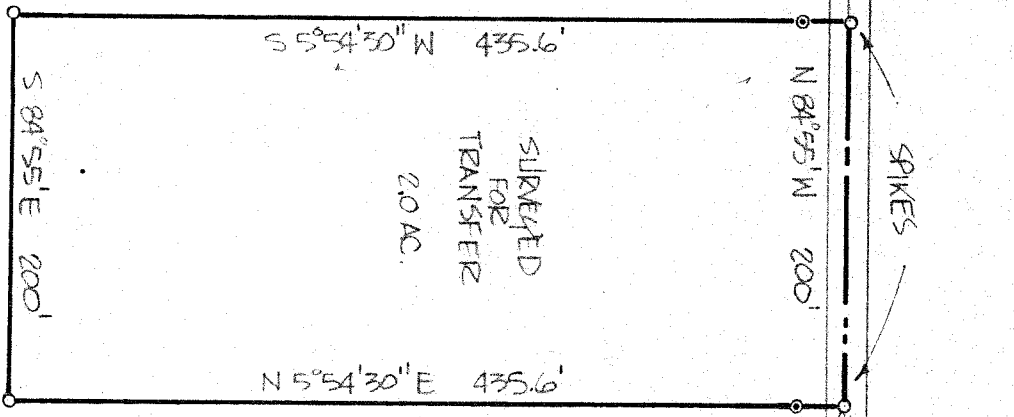 S 5°54'30" W 435.6'
S 84°55' E 200'
SURVEYED
FOR
TRANSFER
2.0 AC.
N 84°55' W 200'
SPIKES
N 5°54'30" E 435.6'